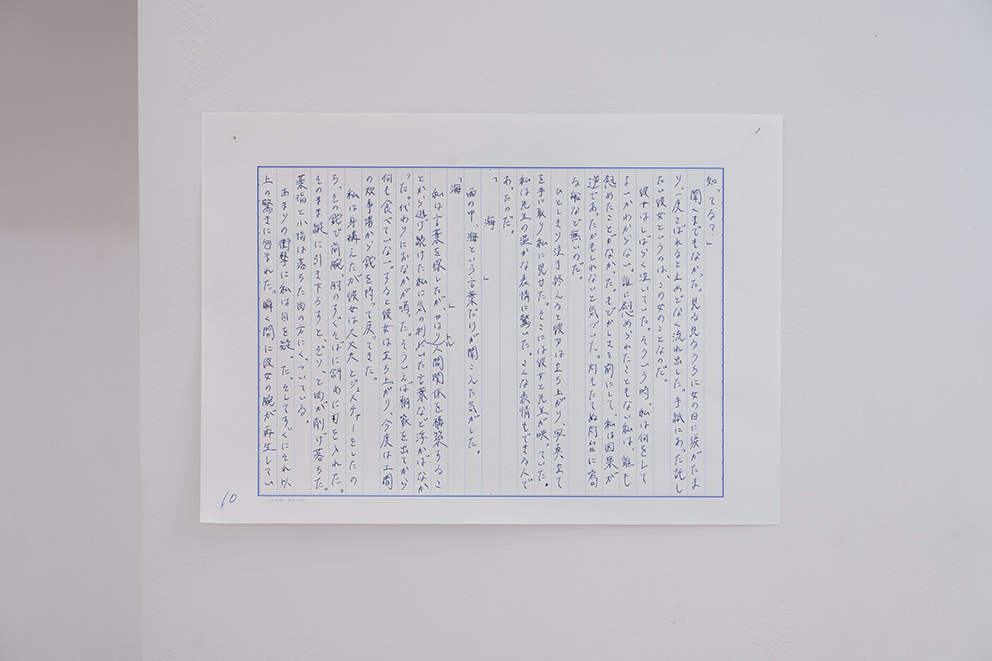 知ってる？」
聞くまでもなかった。見る見るうちに女の目に涙がたま
り、一度こぼれると止めどなく流れ出した。手紙にあった託し
たい彼女というのは、この女のことなのだ。
彼女はしばらく泣いていた。そういう時、私は何をして
よいかわからない。誰に慰められたこともない私は、誰も
慰めたことがなかった。もどかしさを前にして、私は因果が
逆であったかもしれないと気づいた。灯もたてぬ灯台に寄
る船など無いのだ。
ひとしきり泣き終えると彼女は立ち上がり、写真立て
を手に取り私に見せた。そこには彼女と先生が映っていた。
私は先生の温かな表情に驚いた。こんな表情もできる人で
あったのだ。
「　　海　　　」
雨の中、海という言葉だけが聞こえた気がした。
「海　　　　　　　」
私は言葉を探したが、やはり人間関係を構築するこ
とから逃げ続けた私に気の利いた言葉など浮かばなか
った。代わりにおなかが鳴った。そういえば朝家を出てから
何も食べていない。すると彼女は立ち上がり、今度は工間
の炊事場から鉈を持って戻ってきた。
私は身構えたが彼女は大丈夫とジェスチャーをしたの
ち、その鉈で前腕、肘のすぐそばに斜めに刃を入れた。
そのまま縦に引き下ろすと、ゾリ、と肉が削げ落ちた。
薬指と小指は落ちた肉の方にくっついている。
あまりの衝撃に私は目を疑った。そしてすぐにそれ以
上の驚きに包まれた。瞬く間に彼女の腕が再生してい
10